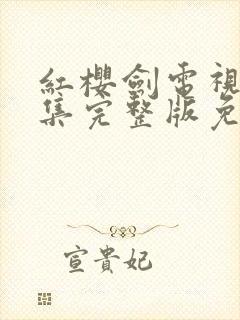 紅櫻劍電視
集完整版免
宣貴妃